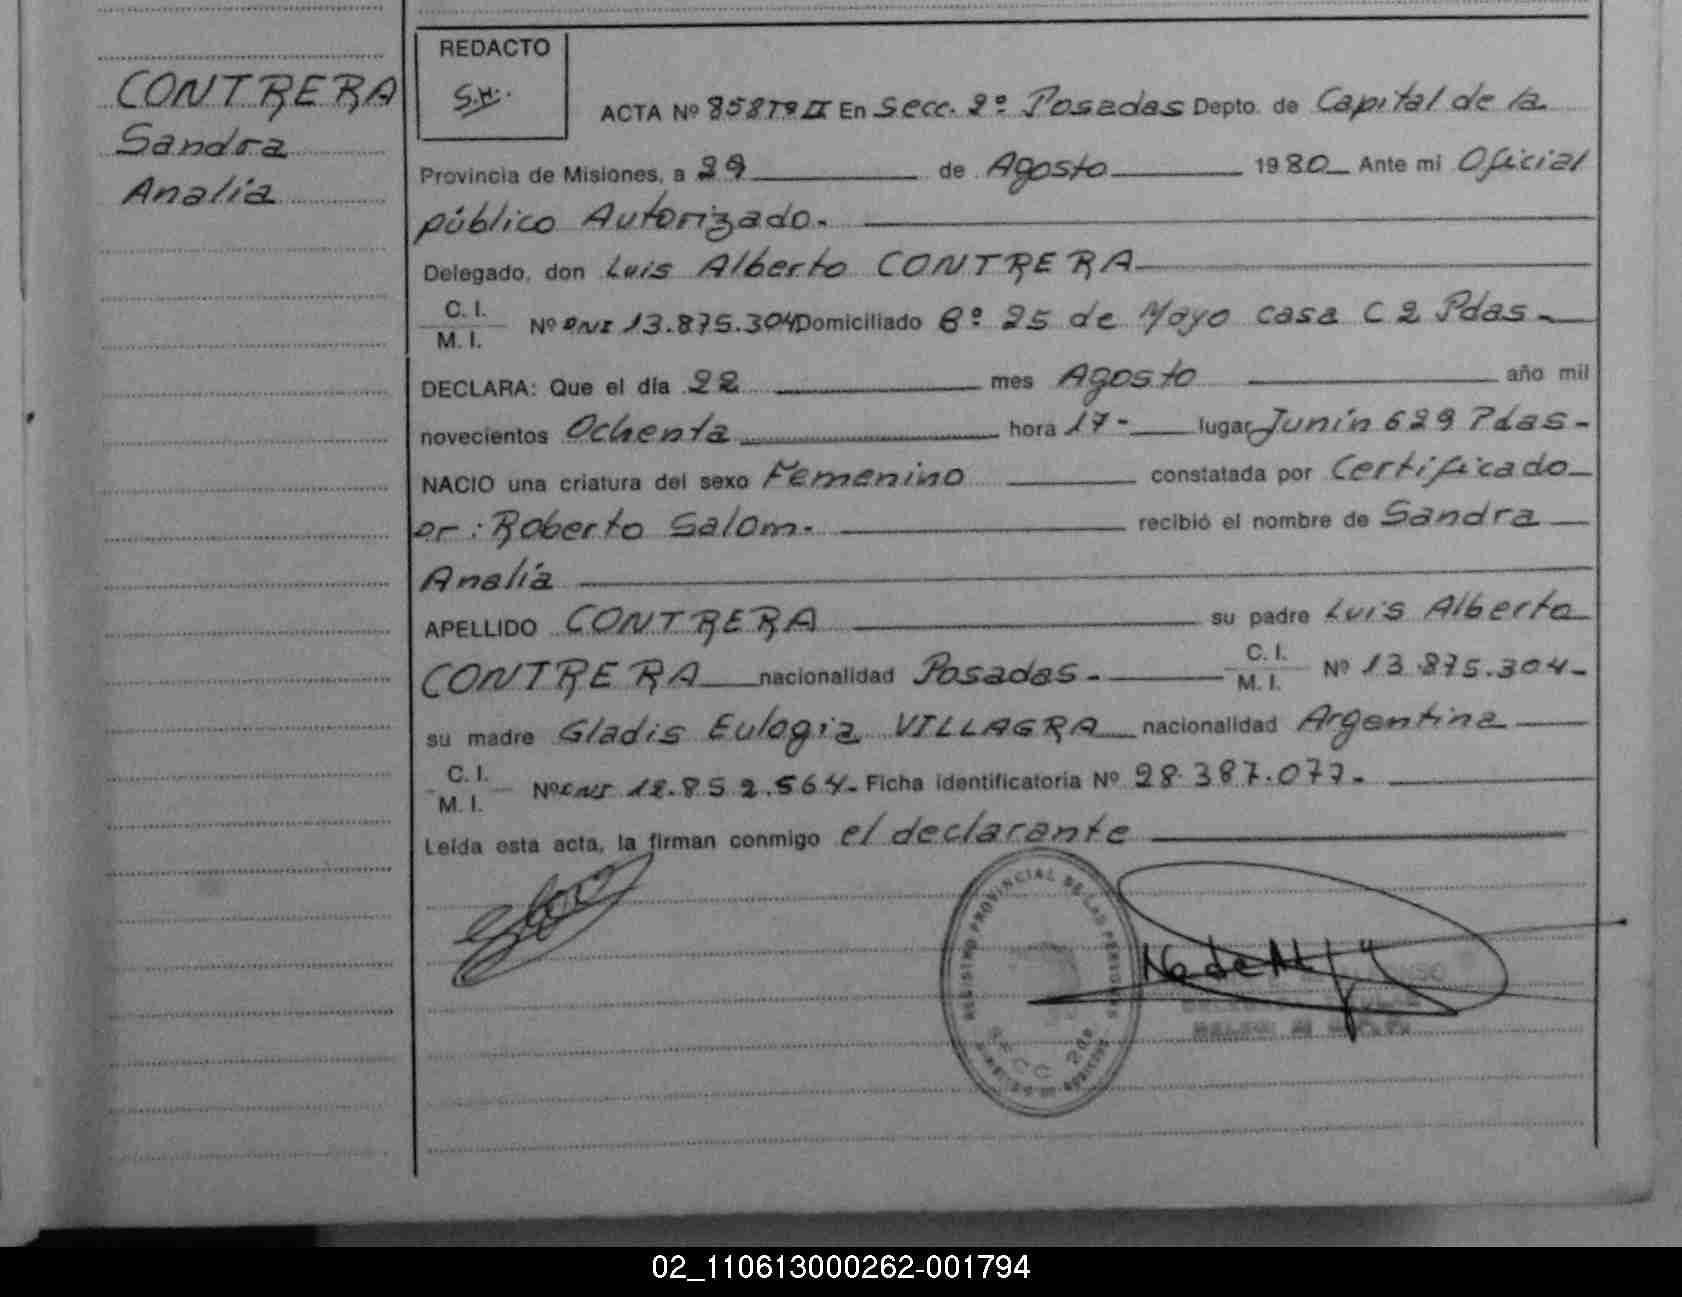 CONTRERA
Sandra
Analía
REDACTO
S.H.
ACTA Nº 858 Tº II En Secc. 2º Posadas Depto. de Capital de la
Provincia de Misiones, a 29 de Agosto 1980 Ante mi Oficial
público Autorizado.
Delegado, don Luis Alberto CONTRERA
C. I.
M. I.
Nº DNI 13.875.304 Domiciliado Bº 25 de Mayo casa C 2 Pdas.
DECLARA: Que el día 22 mes Agosto año mil
novecientos Ochenta hora 17- lugar Junín 629 Pdas-
NACIO una criatura del sexo Femenino constatada por Certificado
Dr: Roberto Salom. recibió el nombre de Sandra
Analía
APELLIDO CONTRERA su padre Luis Alberto
CONTRERA nacionalidad Posadas.- C. I.
M. I.
Nº 13.875.304-
su madre Gladis Eulogia VILLAGRA nacionalidad Argentina
C. I.
M. I.
Nº DNI 12.852.564.- Ficha identificatoria Nº 28.387.077.-
Leída esta acta, la firman conmigo el declarante
REGISTRO PROVINCIAL DE LAS PERSONAS
SECC 2da
02_110613000262-001794